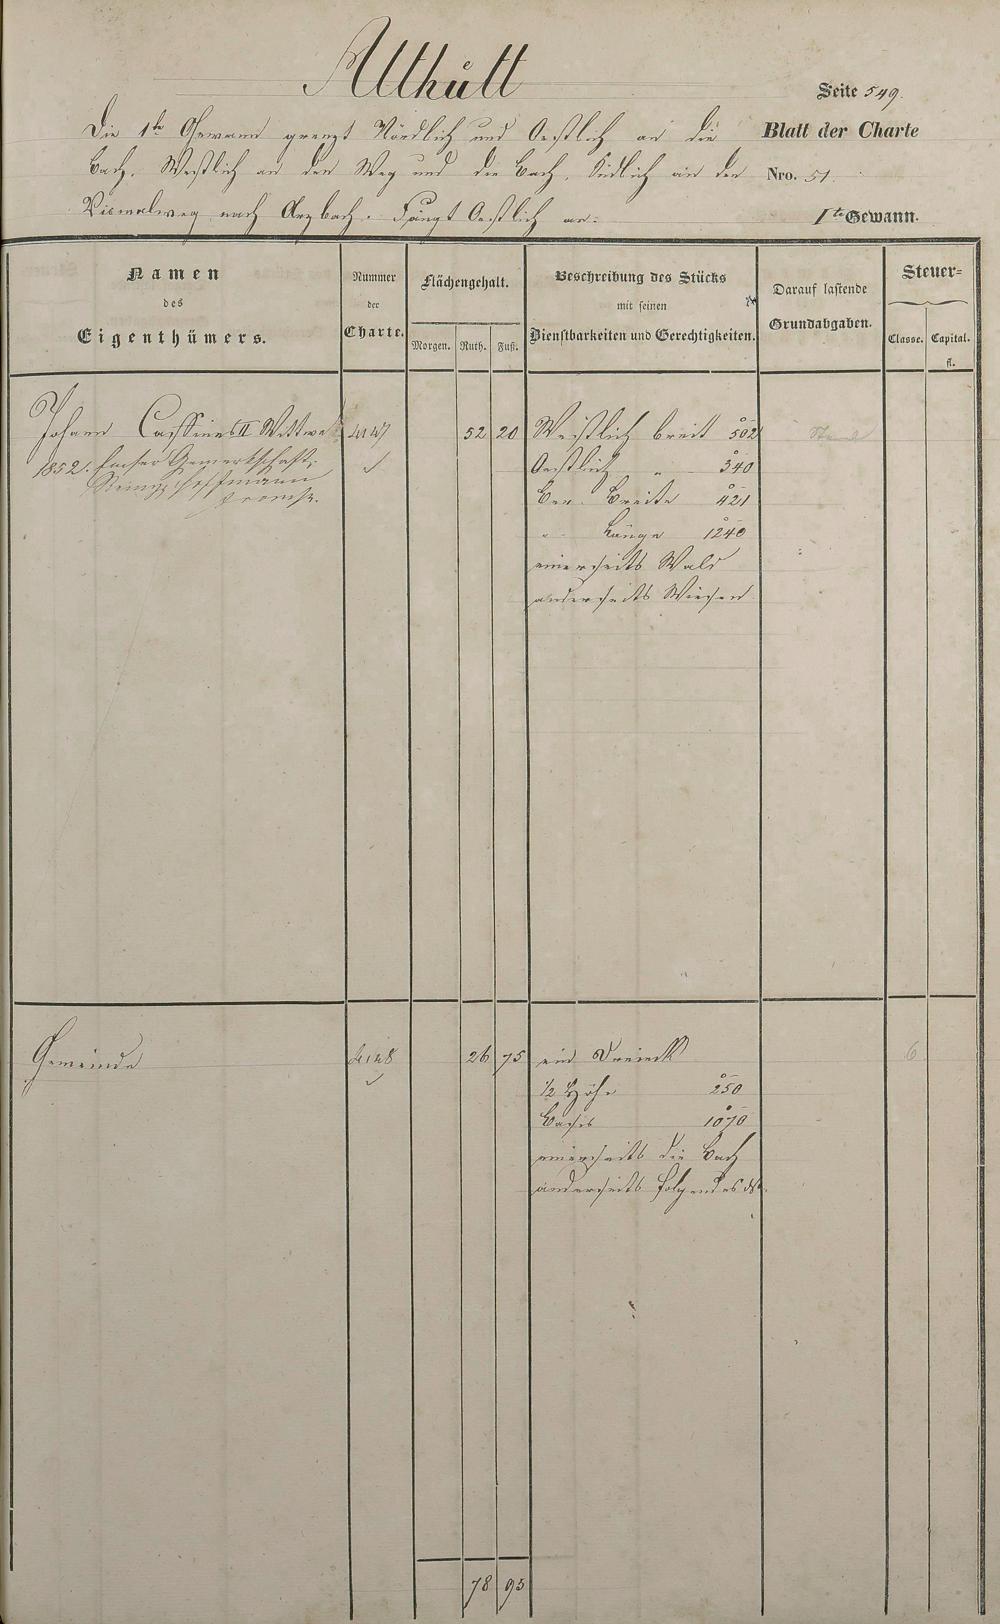 Althütt
Seite 549.
Die 1te Gewann grenzt Nördlich und Oestlich an die
Blatt der Charte
Bach. Westlich an den Weg und die Bach, Südlich an den
Nro. 51.
Vicinalweg nach Arzbach. Fängt Oestlich an.
Ite Gewann.
Namen
des
Eigenthümers.
Nummer
der
Charte.
Flächengehalt.
Morgen. Ruth. Fuß.
Beschreibung des Stücks
mit seinen
Dienstbarkeiten und Gerechtigkeiten.
Darauf lastende
Grundabgaben.
Steuer=
Classe. Capital.
fl.
Johann II Wittwe 52 20 Westlich breit 502
1852. Emser Gewerkschaft: Oestlich " 340
Hoffmann Ber. Breite 421
" Länge 1240
einerseits Wald
anderseits Wiesen
Gemeinde 26 75 ein Dreieck 6
1/2 Höhe 250
Basis 1070
einerseits die Bach
anderseits folgendes
78 95